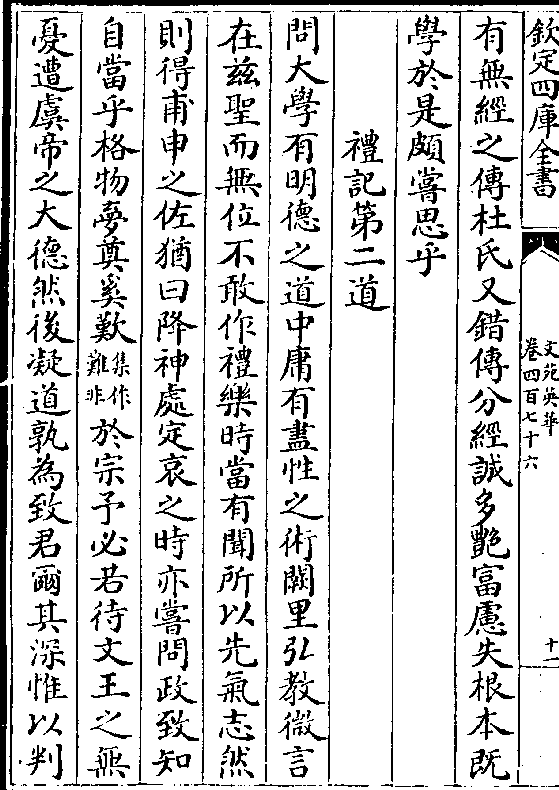 欽定四庫全書
文苑英華
卷四百七十六
十一
有無經之傳杜氏又錯傳分經誠多艶富慮失根本既
學於是頗嘗思乎
禮記第二道
問大學有明德之道中庸有盡性之術闕里弘教微言
在兹聖而無位不敢作禮樂時當有聞所以先氣志然
則得甫申之佐猶曰降神處定哀之時亦嘗問政致知
自當乎格物夢奠奚歎集作難非於宗予必若待文王之無
憂遭虞帝之大德然後凝道孰為致君爾其深惟以判